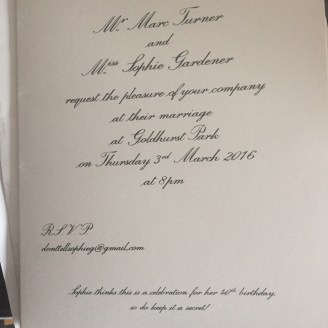 Mr Marc Turner
and
Miss Sophie Gardener
request the pleasure of your company
at their marriage
at Goldhurst Park
on Thursday 3rd March 2016
at 8pm
R S V P
donttellsophieg@gmail.com
Sophie thinks this is a celebration for her 40th birthday,
so do keep it a secret!